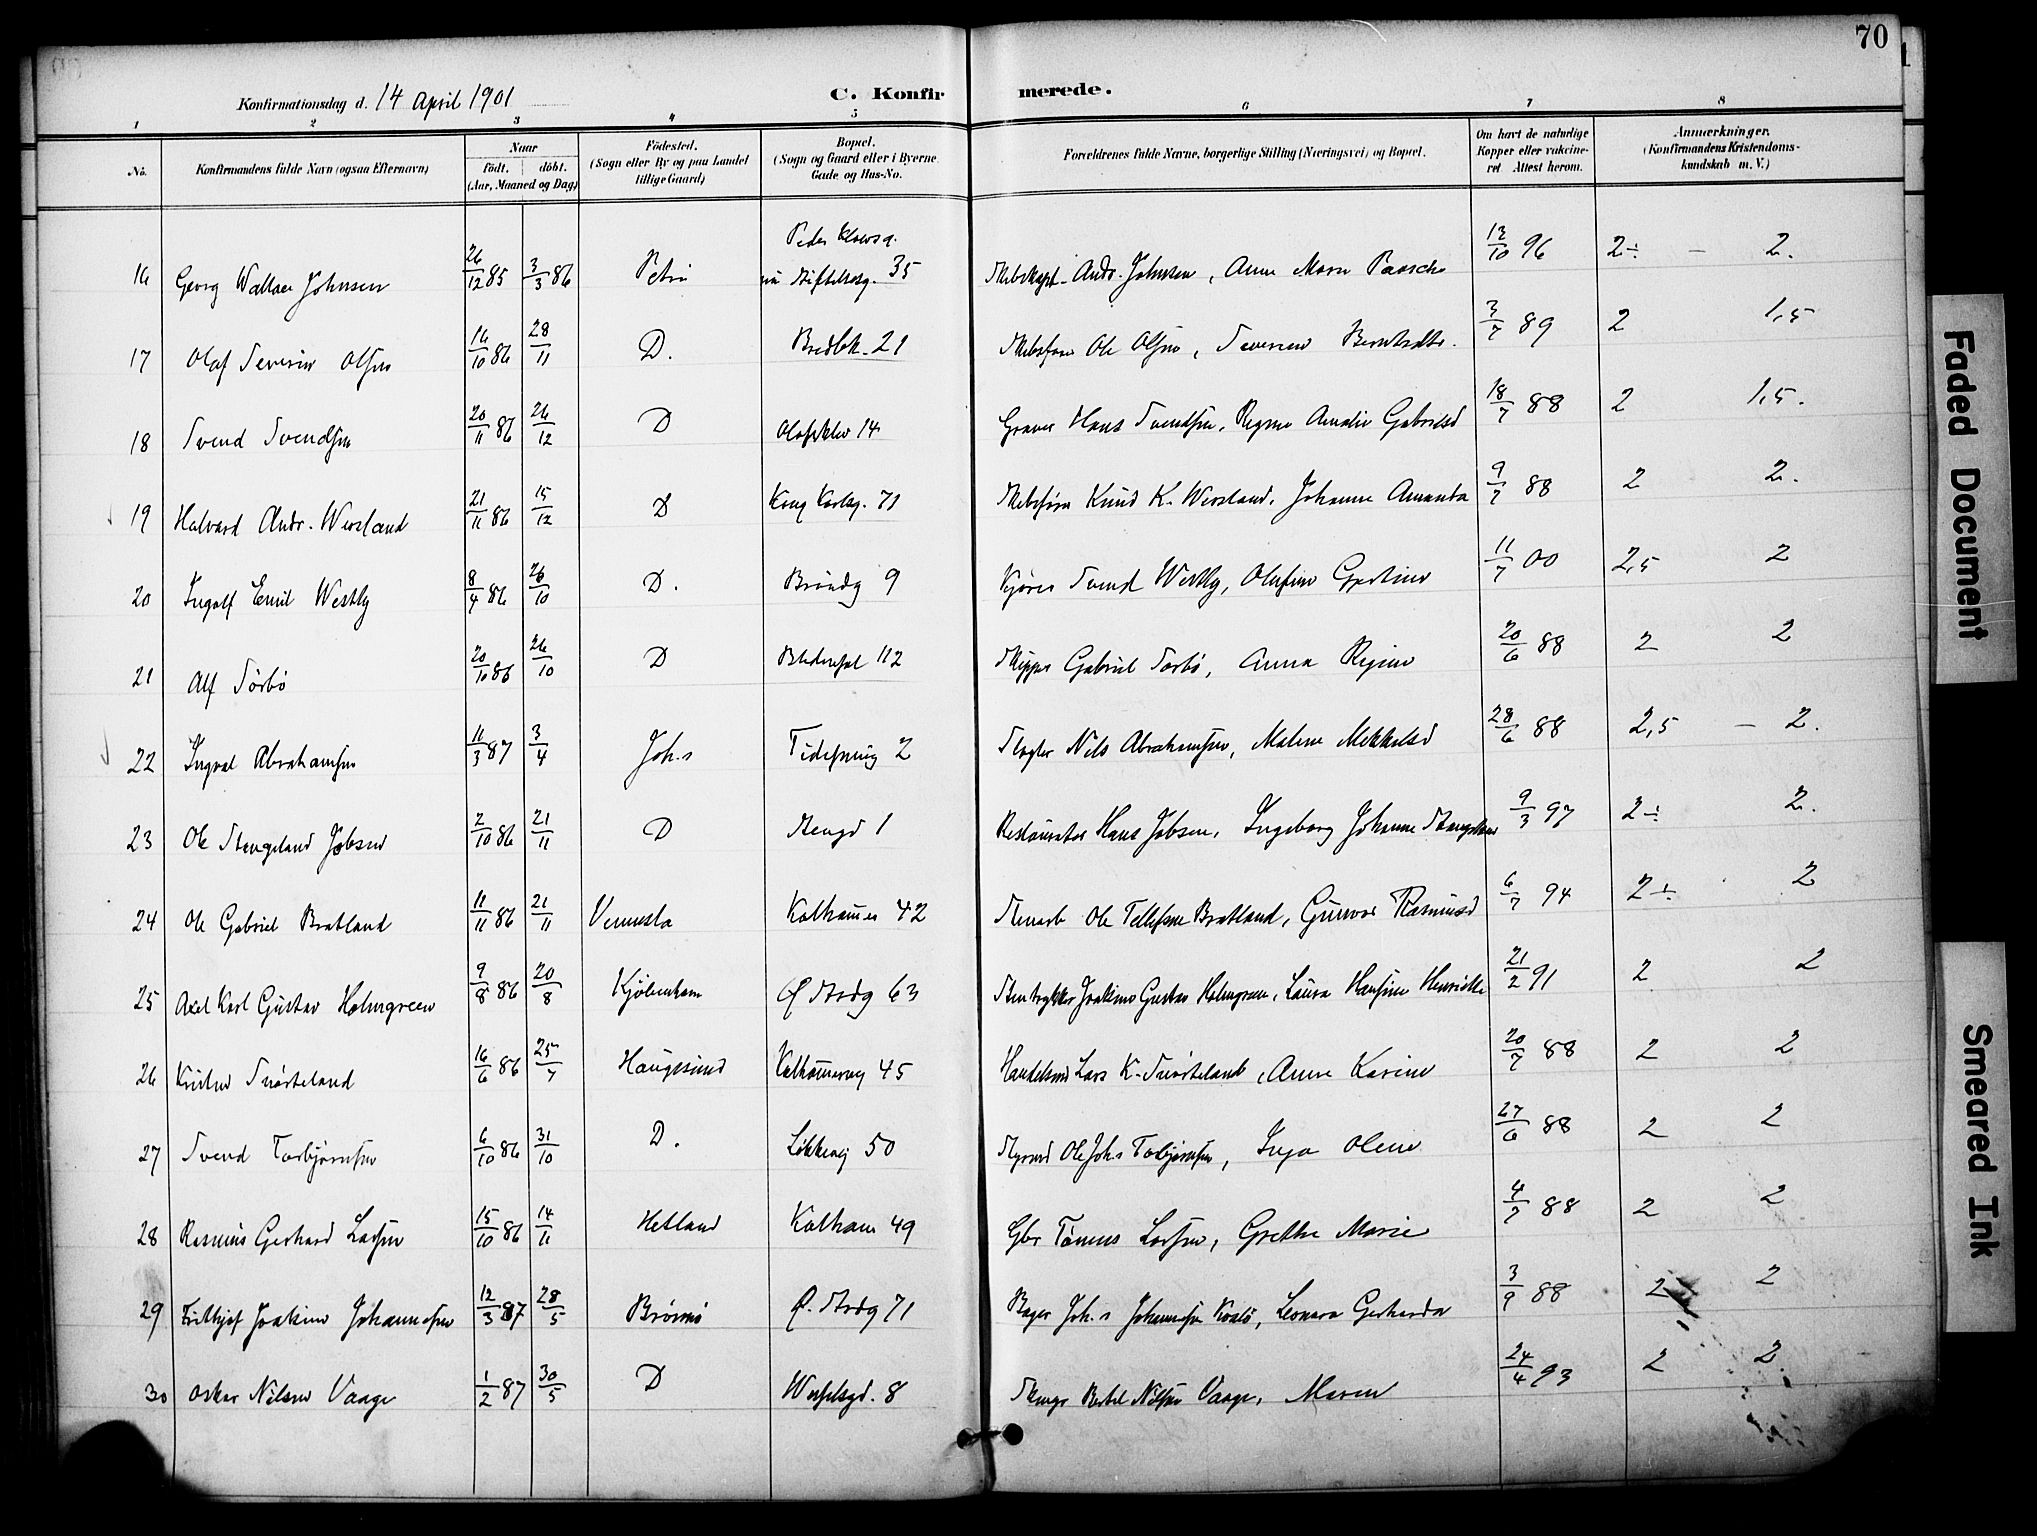 70
Konfirmationsdag d. 14 April 1901
C. Konfir merede.
1 2 3 4 5 6 7 8
No. Konfirmandens fulde Navn (ogsaa Efternavn) Naar födt. döbt. (Aar, Maaned og Dag) Födested. (Sogn eller By og paa Landet tillige Gaard) Bopæl. (Sogn og Gaard eller i Byerne Gade og Hus-No. Forældrenes fulde Navne, borgerlige Stilling (Næringsvei) og Bopæl. Om havt de naturlige Kopper eller vakcineret Attest herom. Anmærkninger. (Konfirmandens Kristendomskundskab m. V.)
Peder Klowsg.
16 Georg Wallace Johnsen 26/12 85 3/3 86 Petri 35 Andr. Johnsen, Anne Marie Paasche 13/10 96 2÷ – 2.
17 Olaf Severin Olsen 16/10 86 28/11 D. Bredbk. 21 Skibsfører Ole Olsen, Severine Berntsdtr. 3/7 89 2 1,5
18 Svend Svendsen 20/11 86 26/12 D Olafsklev 14 Graver Hans Svendsen, Regine Amalie Gabrielsd 18/7 88 2 1,5.
19 Halvard Andr. Wersland 21/11 86 15/12 D Kong Karlsg. 71 Skibsfører Knud K. Wersland, Johanne Amanda 9/7 88 2 2.
20 Ingolf Emil Westly 8/4 86 26/10 D. Bröndg 9 Kjører Svend Westly, Olufine Gjertine 11/7 00 2,5 2
21 Alf Sörbö 20/10 86 26/10 D 112 Skipper Gabriel Sörbö, Anna Regine 20/6 88 2 2
22 Ingval Abrahamsen 11/3 87 3/4 Joh.s Tidesprang 2 Slagter Nils Abrahamsen, Malene Mikkelsd 28/6 88 2,5 – 2.
23 Ole Stengeland Jobsen 2/10 86 21/11 D Steingd 1 Restauratør Hans Jobsen, Ingeborg Johanne Stangeland 9/3 97 2÷ 2.
24 Ole Gabriel Bratland 11/11 86 21/11 Vennesla Kalhamer 42 Stenarb Ole Tellefsen Bratland, Gunvor Rasmusd 6/7 94 2÷ 2
25 Axel Karl Gustav Holmgreen 9/8 86 20/8 Kjöbenhavn Ø Strdg 63 Stentrykker Joakim Gustav Holmgreen, Laura Hansine Henriette 21/2 91 2 2
26 Kristen Snörteland 16/6 86 25/7 Haugesund Kalhamervg 45 Handelsmd Lars K. Snörteland, Anne Karine 20/7 88 2 2
27 Svend Torbjørnsen 6/10 86 31/10 D. Løkkevej 50 Styrmd Ole Joh.s Torbjørnsen, Inga Olene 27/6 88 2 2
28 Rasmus Gerhard Larsen 15/10 86 14/11 Hetland Kalham 49 Gbr Tønnes Larsen, Grethe Marie 4/7 88 2 2
29 Fridthjof Joakim Johannesen 12/3 87 28/5 Brönnö Ø. Strdg 71 Bager Joh.s Johannesen Kvalö, Leonara Gerharda 3/9 88 2 2
30 Oskar Nilsen Vaage 1/2 87 30/5 D Wesselsgd. 8 Bertel Nilsen Vaage, Maren 24/4 93 2 2.
Faded Document
Smeared Ink